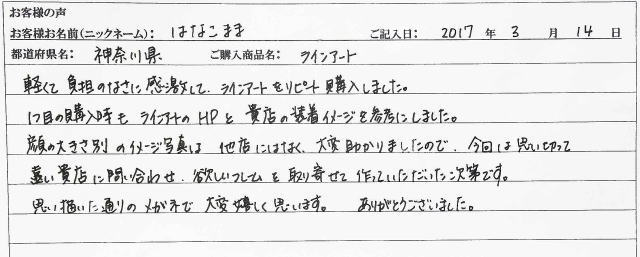 お客様の声
お客様お名前(ニックネーム): はなこまま ご記入日: 2017 年 3 月 14 日
都道府県名: 神奈川県 ご購入商品名: ラインアート
軽くて負担のなさに感激して、ラインアートをリピート購入しました。
1つ目の購入時もラインアートのHPと貴店の装着イメージを参考にしました。
顔の大きさ別のイメージ写真は他店にはなく、大変助かりましたので、今回は思い切って
遠い貴店に問い合わせ、欲しいフレームを取り寄せて作っていただいた次第です。
思い描いた通りのメガネで大変嬉しく思います。 ありがとうございました。